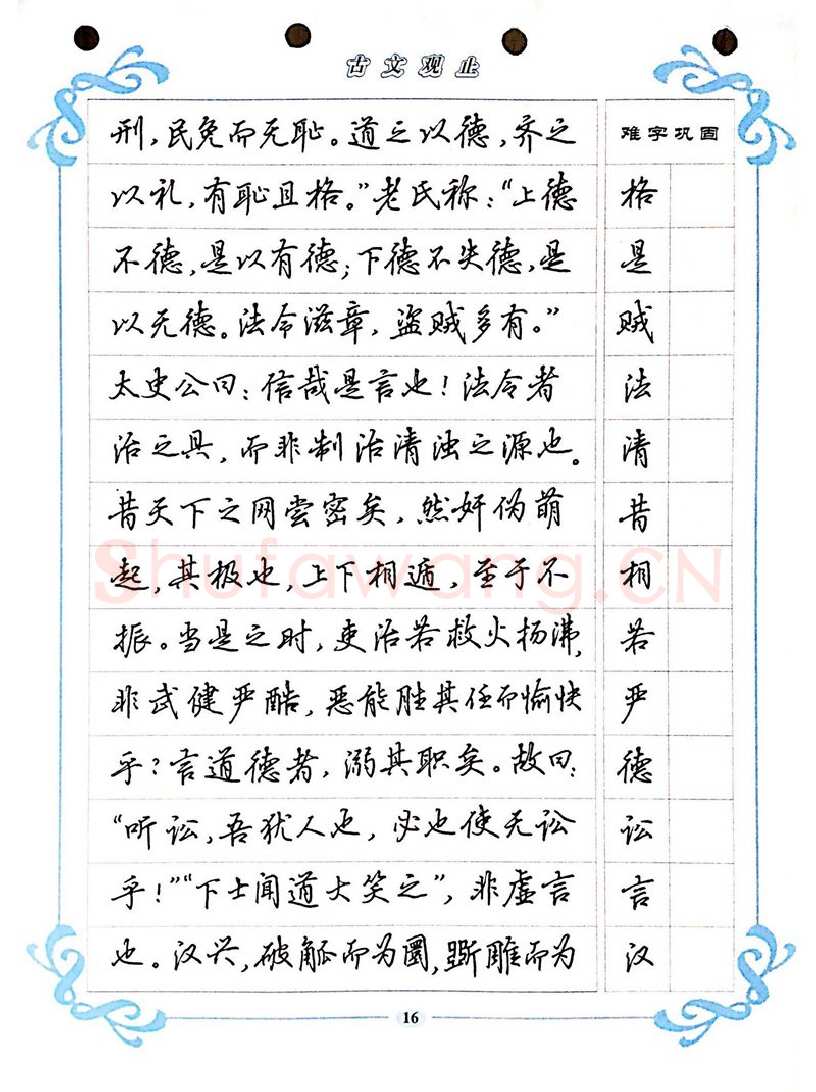 古文观止
刑,民免而无耻。道之以德,齐之
以礼,有耻且格。”老氏称:“上德
不德,是以有德;下德不失德,是
以无德。法令滋章,盗贼多有。”
太史公曰:信哉是言也!法令者
治之具,而非制治清浊之源也。
昔天下之网尝密矣,然奸伪萌
起,其极也,上下相遁,至于不
振。当是之时,吏治若救火扬沸,
非武健严酷,恶能胜其任而愉快
乎?言道德者,溺其职矣。故曰:
“听讼,吾犹人也,必也使无讼
乎!”“下士闻道大笑之”,非虚言
也。汉兴,破觚而为圜,斲雕而为
难字巩固
格
是
贼
法
清
昔
相
若
严
德
讼
言
汉
16
Shufawang.CN